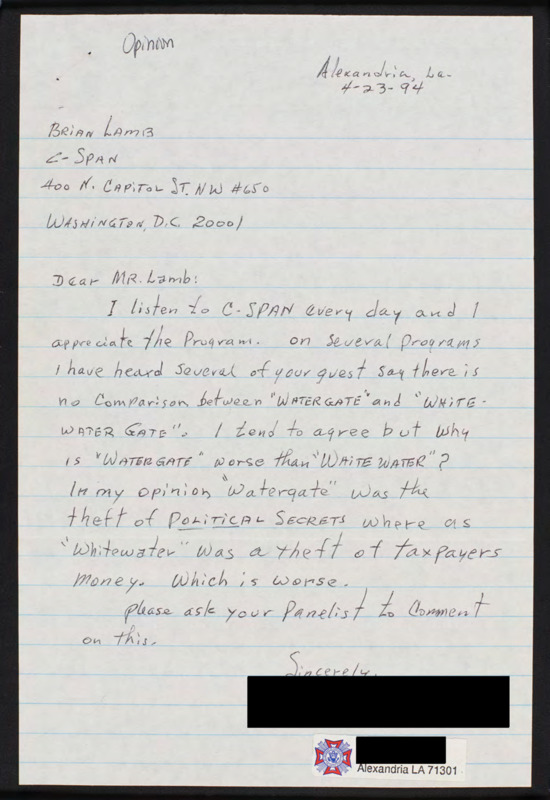 Opinion
Alexandria, La.
4-23-94
BRIAN LAMB
C-SPAN
400 N. CAPITOL ST. NW #650
WASHINGTON, D.C. 20001
Dear MR. Lamb:
I listen to C-SPAN every day and I
appreciate the Program. on several programs
I have heard several of your guest say there is
no Comparison between "WATERGATE" and "WHITE-
WATER GATE". I tend to agree but why
is "WATERGATE" worse than "WHITE WATER"?
In my opinion "Watergate" was the
theft of POLITICAL SECRETS where as
"Whitewater" was a theft of taxpayers
money. Which is worse.
please ask your Panelist to Comment
on this.
Sincerely,
Alexandria LA 71301